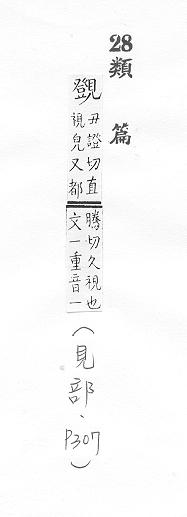 28 類篇
覴
丑證切直
視皃又都
騰切久視也
文一重音一
(見部、P307)